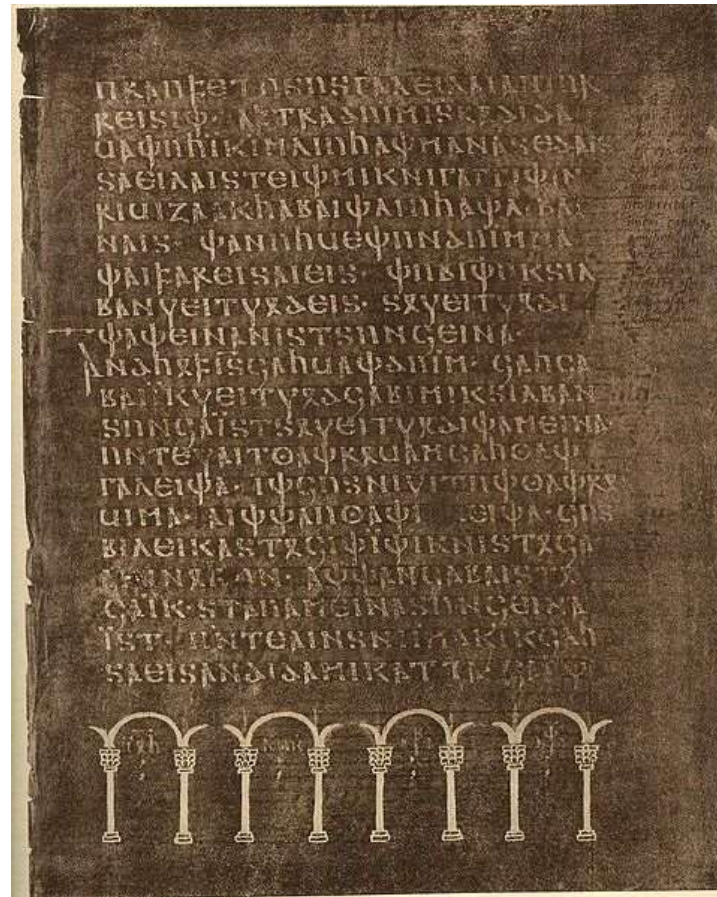 𐍀𐍂𐌰𐌿𐍆𐌴𐍄𐌿𐍃𐌿𐍃𐌲𐌰𐌻𐌴𐌹𐌻𐌰𐌹𐌰𐌽𐌹𐌿𐍂
𐍂𐌴𐌹𐍃𐌹𐌸· 𐌰𐍆𐍄𐍂𐌰𐌳𐌿𐌹𐌼𐌹𐍃𐍂𐍉𐌳𐌹𐌳𐌰
𐌵𐌰𐌸𐌿𐌷𐌹̈𐌺𐌹𐌼𐌻𐌹𐌿𐌷𐌰𐌸𐌼𐌰𐌽𐌰𐍃𐌴𐌳𐌰𐌹𐍃
𐍃𐌰𐌴𐌹𐌻𐌰𐌹𐍃𐍄𐌴𐌹𐌸𐌼𐌹𐌺𐌽𐌹𐌲𐌰𐌲𐌲𐌹𐌸𐌹𐌽
𐍂𐌹𐌵𐌹𐌶𐌰𐌰𐌺𐌷𐌰𐌱𐌰𐌹𐌸𐌻𐌹𐌿𐌷𐌰𐌸𐌻𐌹𐌱𐌰𐌹
𐌽𐌰𐌹𐍃· 𐌸𐌰𐌽𐌿𐌷𐌵𐌴𐌸𐌿𐌽𐌳𐌿𐌹𐌼𐌼𐌰
𐌸𐌰𐌹𐍆𐌰𐍂𐌴𐌹𐍃𐌰𐌹𐌴𐌹𐍃· 𐌸𐌿𐌱𐌹𐌸𐌿𐌺𐍃𐌹𐌻
𐌱𐌰𐌽𐍅𐌴𐌹𐍄𐍅𐍉𐌳𐌴𐌹𐍃· 𐍃𐍉𐍅𐌴𐌹𐍄𐍅𐍉𐌳𐌹
𐌸𐌰𐌸𐌴𐌹𐌽𐌰𐌽𐌹𐍃𐍄𐍃𐌿𐌽𐌾𐌴𐌹𐌽𐌰·
𐌰𐌽𐌳𐌷𐍉𐍆𐌹̈𐍃𐌾𐌰𐌷𐌵𐌰𐌸𐌳𐌿𐌹𐌼· 𐌾𐌰𐌷𐌾𐌰
𐌱𐌰𐌹𐌹̈𐌺𐍅𐌴𐌹𐍄𐍅𐍉𐌳𐌾𐌰𐌱𐌹𐌼𐌹𐌺𐍃𐌹𐌻𐌱𐌰𐌽
𐍃𐌿𐌽𐌾𐌰𐌹̈𐍃𐍄𐍃𐍉𐍅𐌴𐌹𐍄𐍅𐍉𐌳𐌹𐌸𐌰𐌼𐌴𐌹𐌽𐌰
𐌿𐌽𐍄𐌴𐍅𐌰𐌹𐍄𐍈𐌰𐌸𐍂𐍉𐌵𐌰𐌼𐌾𐌰𐌷𐍈𐌰𐌸
𐌲𐌰𐌻𐌴𐌹𐌸𐌰· 𐌹̈𐌸𐌾𐌿𐍃𐌽𐌹𐍅𐌹𐍄𐌿𐌸𐍈𐌰𐌸𐍂𐍉
𐌵𐌹𐌼𐌰· 𐌰𐌹𐌸𐌸𐌰𐌿𐍈𐌰𐌸𐌲𐌰𐌻𐌴𐌹𐌸𐌰· 𐌾𐌿𐍃
𐌱𐌹𐌻𐌴𐌹𐌺𐌰𐍃𐍄𐍉𐌾𐌹𐌸𐌹̈𐌸𐌹𐌺𐌽𐌹𐍃𐍄𐍉𐌾𐌰
𐌰𐌹𐌽𐌽𐍉𐌷𐌿𐌽· 𐌰𐌸𐌸𐌰𐌽𐌾𐌰𐌱𐌰𐌹𐍃𐍄𐍉
𐌾𐌰𐌹̈𐌺· 𐍃𐍄𐌰𐌿𐌰𐌼𐌴𐌹𐌽𐌰𐍃𐌿𐌽𐌾𐌴𐌹𐌽𐌰
𐌹̈𐍃𐍄· 𐌿𐌽𐍄𐌴𐌰𐌹𐌽𐍃𐌽𐌹𐌹𐌼𐌰𐌺𐌹𐌺𐌾𐌰𐌷
𐍃𐌰𐌴𐌹𐍃𐌰𐌽𐌳𐌹𐌳𐌰𐌼𐌹𐌺𐌰𐍄𐍄𐌰·